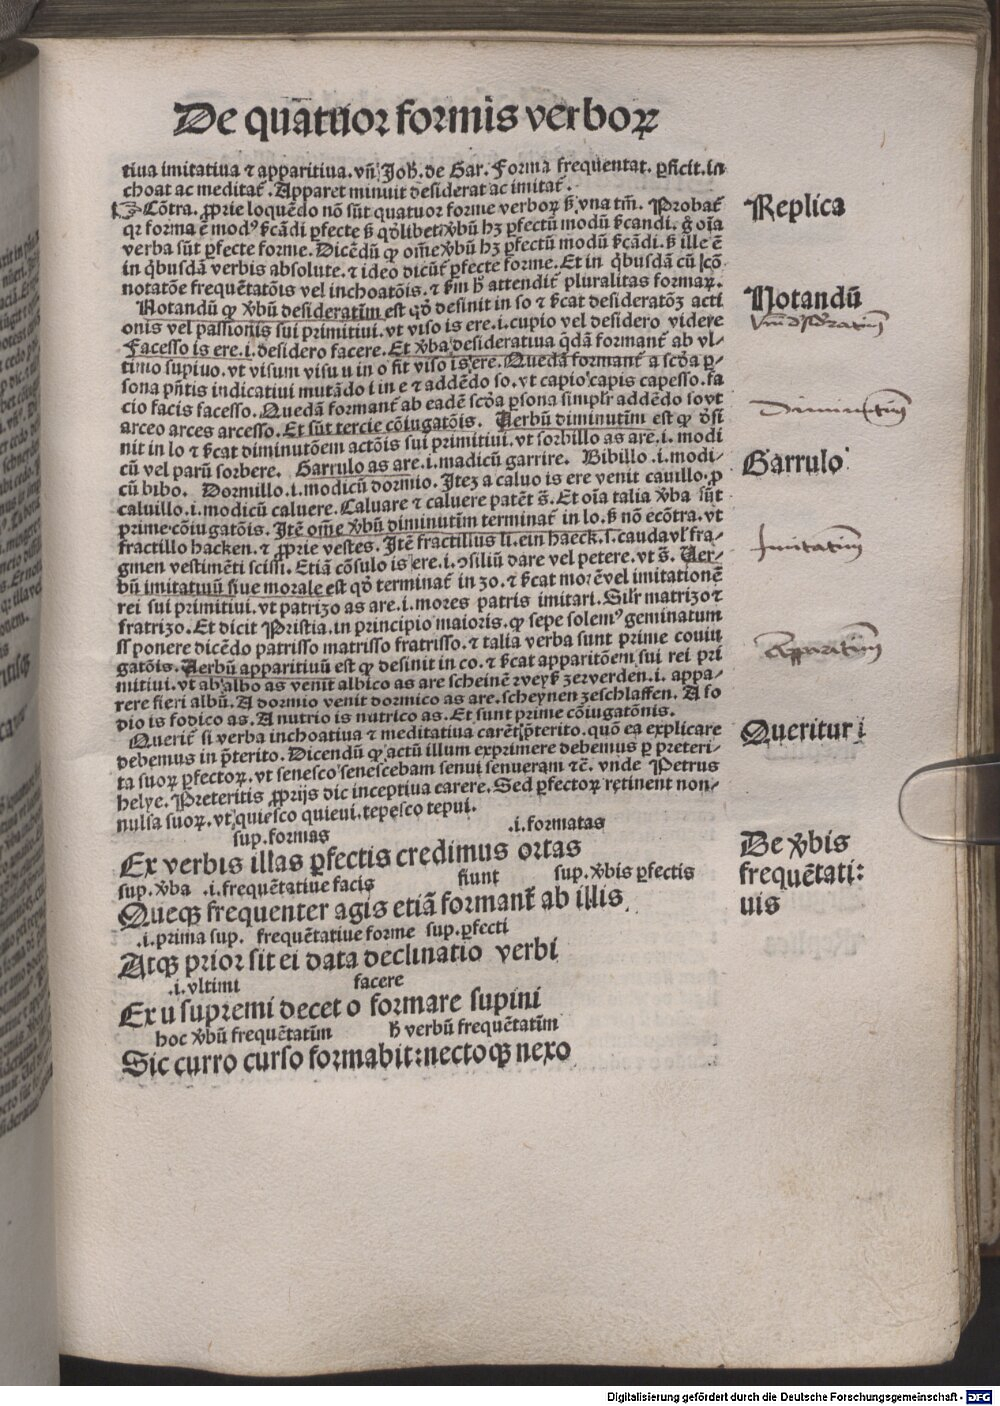 De quātuor formis verboꝝ
tiua imitatiua ⁊ apparitiua. vñ Joh̄. de Gar. Forma frequentat. ꝑficit. in
choat ac meditat̄. Apparet minuit desiderat ac imitat̄.
Cōtra. ꝓprie loquēdo nō sūt quatuor forme verboꝝ s̄ vna tm̄. Probat̄
qꝛ forma ē modꝰ s̄cādi ꝑfecte s̄ qd̓libet v̓bū hꝫ ꝑfectū modū s̄candi. g̊ oīa
verba sūt ꝑfecte forme. Dicēdū ꝙ om̄e v̓bū hꝫ ꝑfectū modū s̄cādi. s̄ ille ē
in q̄busdā verbis absolute. ⁊ ideo dicūt̄ ꝑfecte forme. Et in q̄busdā cū cō
notatōe frequētatōis vel inchoatōis. ⁊ s̄m h̄ attendit̄ pluralitas formaꝝ.
Notandū ꝙ v̓bū desideratim est qd̓ desinit in so ⁊ s̄cat desideratōꝫ acti
onis vel passionis sui primitiui. vt viso is ere .i. cupio vel desidero videre
Facesso is ere .i. desidero facere. Et v̓ba desideratiua q̄dā formant̄ ab vl-
timo supiuo. vt visum visu u in o fit viso is ere. Quedā formant̄ a scd̓a ꝑ-
sona pn̄tis indicatiui mutādo i in e ⁊ addēdo so. vt capio capis capesso. fa
cio facis facesso. Quedā formant̄ ab eadē scd̓a ꝑsona simplr̄ addēdo so vt
arceo arces arcesso. Et sūt tercie cōiugatōis. Uerbū diminutim est qd̓ d̓si
nit in lo ⁊ s̄cat diminutōem actōis sui primitiui. vt sorbillo as are .i. modi
cū vel parū sorbere. Garrulo as are .i. madicū garrire. Bibillo .i. modi-
cū bibo. Dormillo .i. modicū dormio. Iteꝫ a caluo is ere venit cauillo. ꝓ
caluillo .i. modicū caluere. Caluare ⁊ caluere patēt s̄. Et oīa talia v̓ba sūt
prime cōiugatōis. Itē om̄e v̓bū diminutim terminat̄ in lo. s̄ nō ecōtra. vt
fractillo hacken. ⁊ ꝓprie vestes. Itē fractillus li. ein haeck. s. cauda vl̓ fra-
gmen vestimēti scissi. Etiā cōsulo is ere .i. ꝯsiliū dare vel petere. vt s̄. Uer-
bū imitatiuū siue morale est qd̓ terminat̄ in zo. ⁊ s̄cat morē vel imitationē
rei sui primitiui. vt patrizo as are .i. mores patris imitari. Silr̄ matrizo ⁊
fratrizo. Et dicit Pristia. in principio maioris. ꝙ sepe solemꝰ geminatum
ss ponere dicēdo patrisso matrisso fratrisso. ⁊ talia verba sunt prime coniu
gatōis. Uerbū apparitiuū est ꝙ desinit in co. ⁊ s̄cat apparitōem sui rei pri
mitiui. vt ab albo as venit albico as are scheinē zverden .i. appa-
rere fieri albū. A dormio venit dormico as are. scheynen zeschlaffen. A fo
dio is fodico as. A nutrio is nutrico as. Et sunt prime cōiugatōnis.
Querit̄ si verba inchoatiua ⁊ meditatiua carēt p̄terito. quō ea explicare
debemus in p̄terito. Dicendū ꝙ actū illum exprimere debemus ꝑ preteri-
ta suoꝝ ꝑfectoꝝ. vt senesco senescebam senui senueram ⁊c̄. vnde Petrus
helye. Preteritis ꝓprijs dic inceptiua carere. Sed ꝑfectoꝝ retinent non-
nulla suoꝝ. vt quiesco quieui. tepesco tepui.
sup. formas .i. formatas
Ex verbis illas ꝑfectis credimus ortas
sup. v̓ba .i. frequētatiue facis fiunt sup. v̓bis ꝑfectis
Queqꝫ frequenter agis etiā formant̄ ab illis
.i. prima sup. frequētatiue forme sup. ꝑfecti
Atqꝫ prior sit ei data declinatio verbi
.i. vltimi facere
Ex u supremi decet o formare supini
hoc v̓bū frequētatim h̄ verbū frequētatim
Sic curro curso formabit: nectoqꝫ nexo
Replica
Notandū
Diminutiuū
Garrulo
Imitatiuū
Apparitiuū
Queritur i
De v̓bis
frequētati:
uis
Digitalisierung gefördert durch die Deutsche Forschungsgemeinschaft - DFG